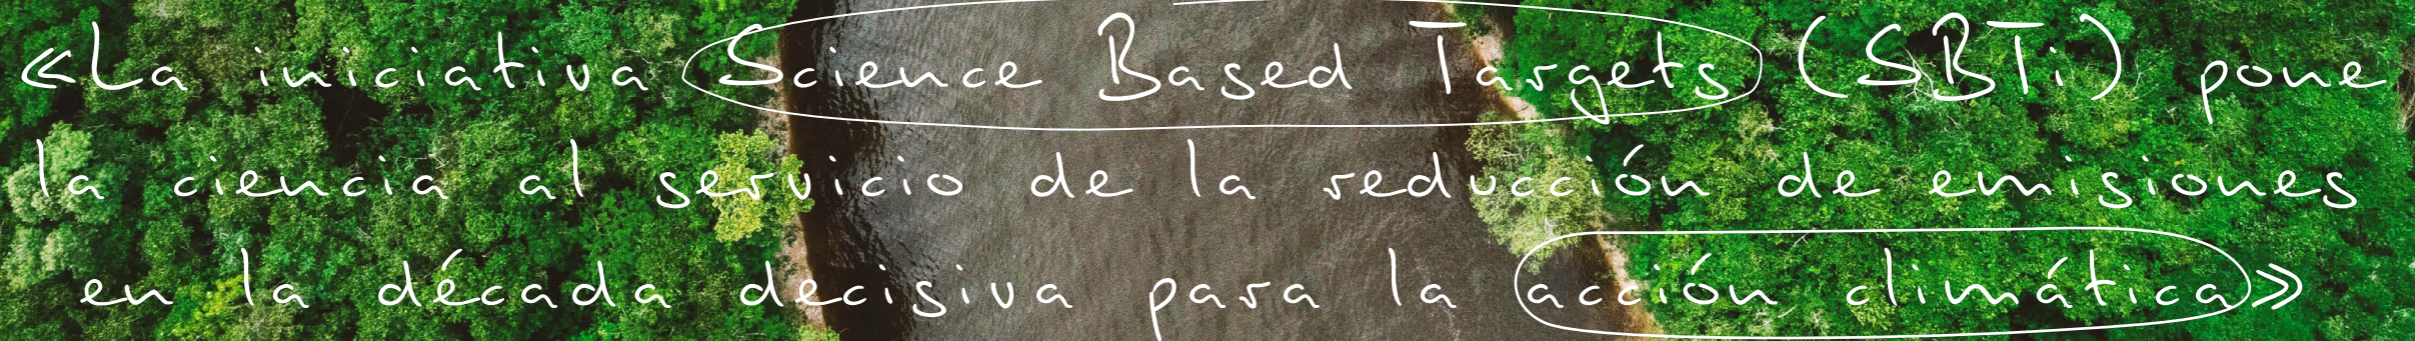 «La iniciativa Science Based Targets (SBTi) pone
la ciencia al servicio de la reducción de emisiones
en la década decisiva para la acción climática»